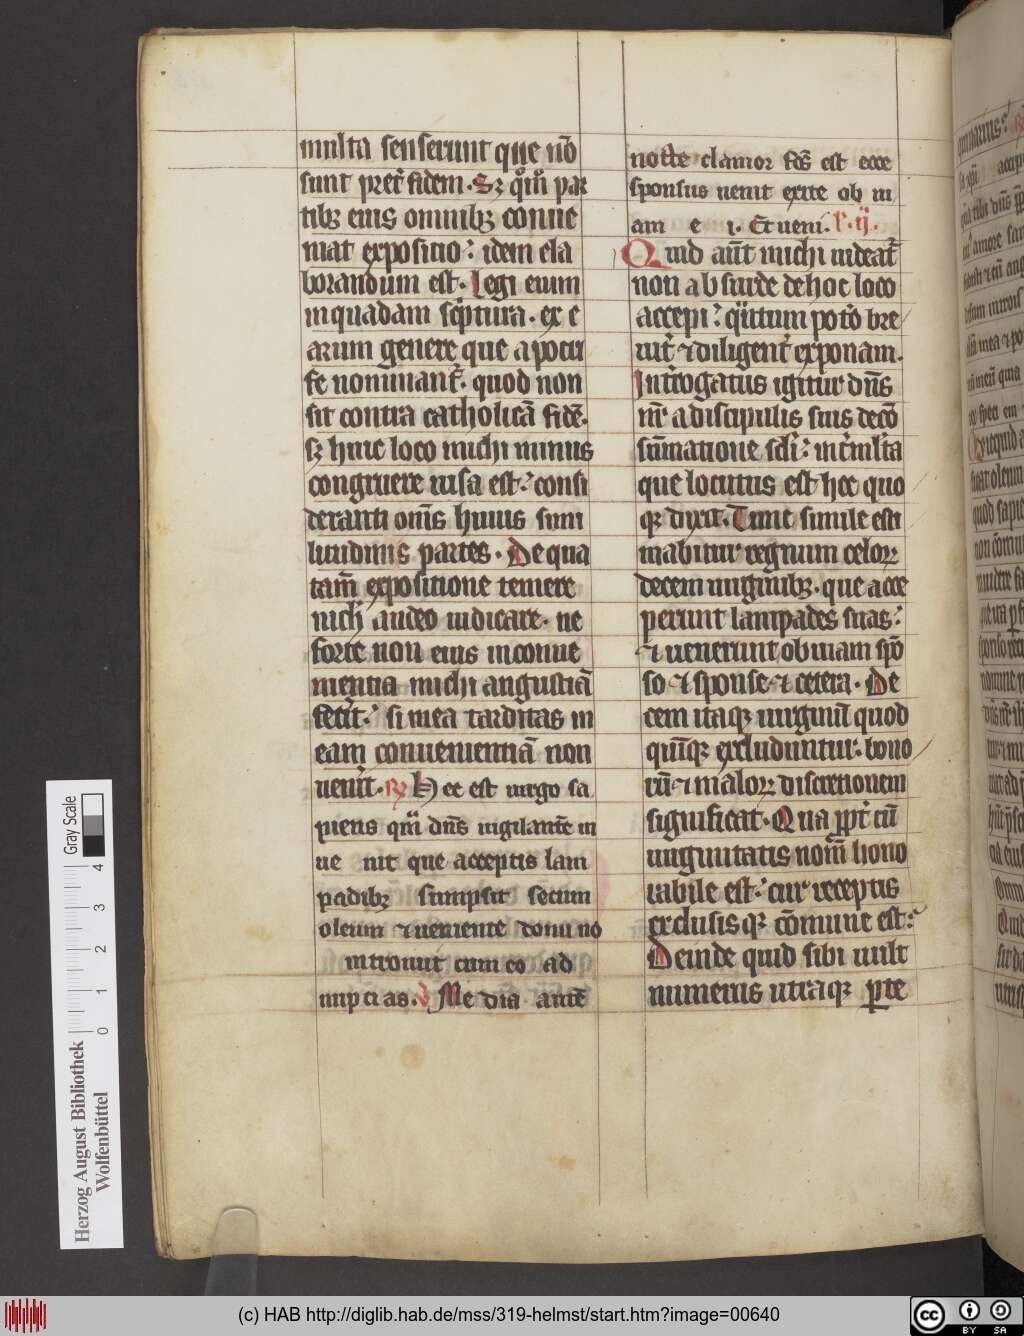 multa senserunt que nō
sunt pret̄ fidem. Sꝫ qm̄ par
tibꝫ eius omnibꝫ conue
niat expositio: idem ela
borandum est. Legi enim
in quadam sc̄ptura. ex e
arum genere que apocri
fe nominant̄. quod non
sit contra catholicā fidē.
sꝫ huic loco michi minus
congruere uisa est: consi
deranti om̄s huius simi
litudinis partes. De qua
tam̄ expositione temere
nich̄ audeo iudicare. ne
forte non eius inconue
nientia michi angustiā
fecit̄: si mea tarditas in
eam conuenientiā non
uenit̄. R Hec est uirgo sa
piens quā dn̄s uigilantē in
ue nit que acceptis lam
padibꝫ sumpsit secum
oleum ⁊ ueniente domino
introiuit cum eo ad
nupcias. V Media autē
nocte clamor fc̄s est ecce
sponsus uenit exite ob ui
am e i. Et ueni. l. ij.
Quid aūt michi uideat̄
non absurde de hoc loco
accepi: qūtum potō bre
uit̄ ⁊ diligent̄ exponam.
Int̄rogatus igitur dn̄s
nr̄ a discipulis suis de cō
sūmatione scl̄i: int̄ ml̄ta
que locutus est hec quo
qꝫ dixit. Tunc simile esti
mabitur regnum celoꝝ
decem uirginibꝫ. que acce
perunt lampades suas:
⁊ uenerunt obuiam spō
so ⁊ sponse ⁊ cetera. De
cem itaqꝫ uirginū quod
quīqꝫ excluduntur. bono
rū ⁊ maloꝝ discretionem
significat. Qua ppt̄ cū
uirginitatis nom̄ hono
rabile est: cur receptis
exclusisqꝫ cōmune est:
Deinde quid sibi uult
numerus utraqꝫ parte
Herzog August Bibliothek
Wolfenbüttel
Gray Scale
0 1 2 3 4
(c) HAB http://diglib.hab.de/mss/319-helmst/start.htm?image=00640
cc BY SA